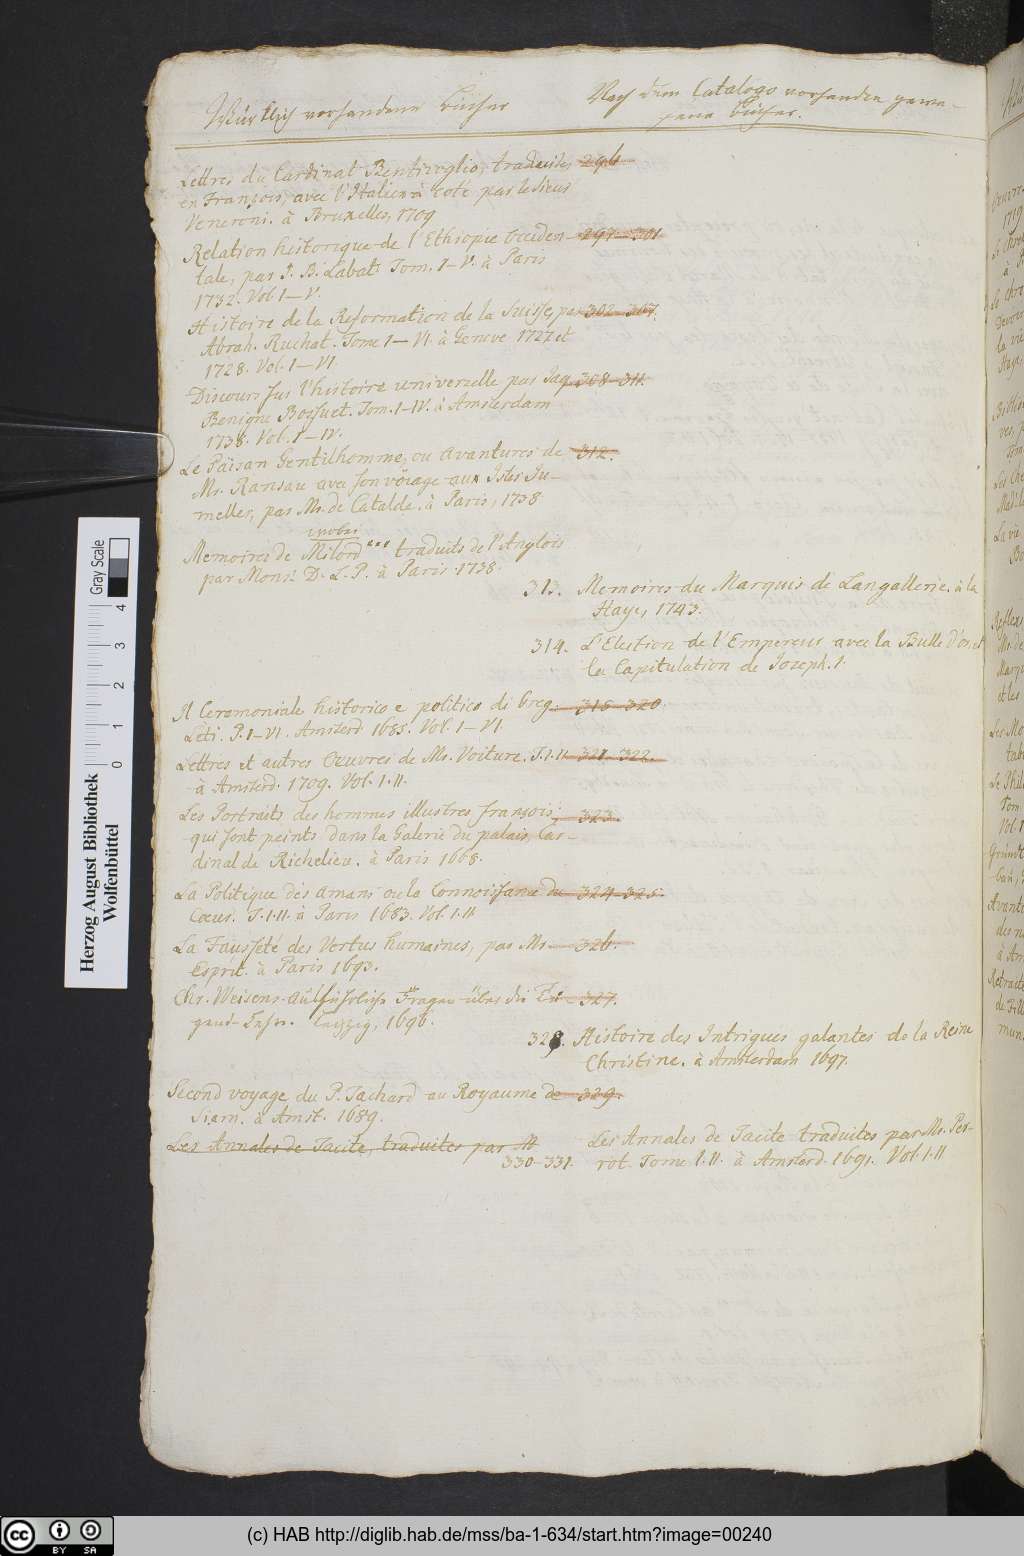 Würklich vorhandene Bücher
Nach dem Catalogo vorhanden gewe-
sene Bücher.
Lettres du Cardinal Bentivoglio, traduites 296
en François, avec l'Italien à Cote par le Sieur
Veneroni. à Bruxelles, 1709
Relation historique de l'Ethiopie Occiden- 297-301
tale, par J. B. Labat. Tom. I-V. à Paris
1732. Vol I-V.
Histoire de la Reformation de la Suisse, par 302-307.
Abrah. Ruchat. Tome I-VI. à Geneve 1727 et
1728. Vol. I-VI.
Discours sur l'histoire universelle par Jaq. 308-311.
Benigne Bossuet. Tom. I-IV. à Amsterdam
1738. Vol. I-IV.
Le Païsan Gentilhomme, ou avantures de 312.
Mr. Ransau avec son voyage aux Isles Ju-
melles, par Mr. de Catalde. à Paris, 1738
Memoires de Milord *** traduits de l'Anglois
par Monsr. D. L. P. à Paris 1738.
313. Memoires du Marquis de Langallerie. à la
Haye, 1743.
314. L'Election de l'Empereur avec la Bulle d'or et
la Capitulation de Joseph. I.
Il Ceremoniale historico e politico di Greg. 315-320
Leti. P. I-VI. Amsterd. 1685. Vol. I-VI.
Lettres et autres Oeuvres de Mr. Voiture. T. I. II. 321-322.
à Amsterd. 1709. Vol. I. II.
Les Portraits des hommes illustres françois, 323.
qui sont peints dans la Galerie du palais Car-
dinal de Richelieu. à Paris 1668.
La Politique des amans ou la Connoissance du 324-325.
Coeur. T. I. II. à Paris 1683. Vol. I. II
La Fausseté des Vertus humaines, par Mr. 326.
Esprit. à Paris 1693.
Chr. Weisens ausführliche Fragen über die Tu- 327.
gend-Lehre. Leipzig, 1696.
328. Histoire des Intrigues galantes de la Reine
Christine. à Amsterdam 1697.
Second voyage du P. Tachard au Royaume de 329.
Siam. à Amst. 1689.
Les Annales de Tacite, traduites par M
330-331. Les Annales de Tacite traduites par Mr. Per-
rot. Tome I. II. à Amsterd. 1691. Vol. I. II
Gray Scale
0 1 2 3 4
Herzog August Bibliothek
Wolfenbüttel
cc BY SA
(c) HAB http://diglib.hab.de/mss/ba-1-634/start.htm?image=00240